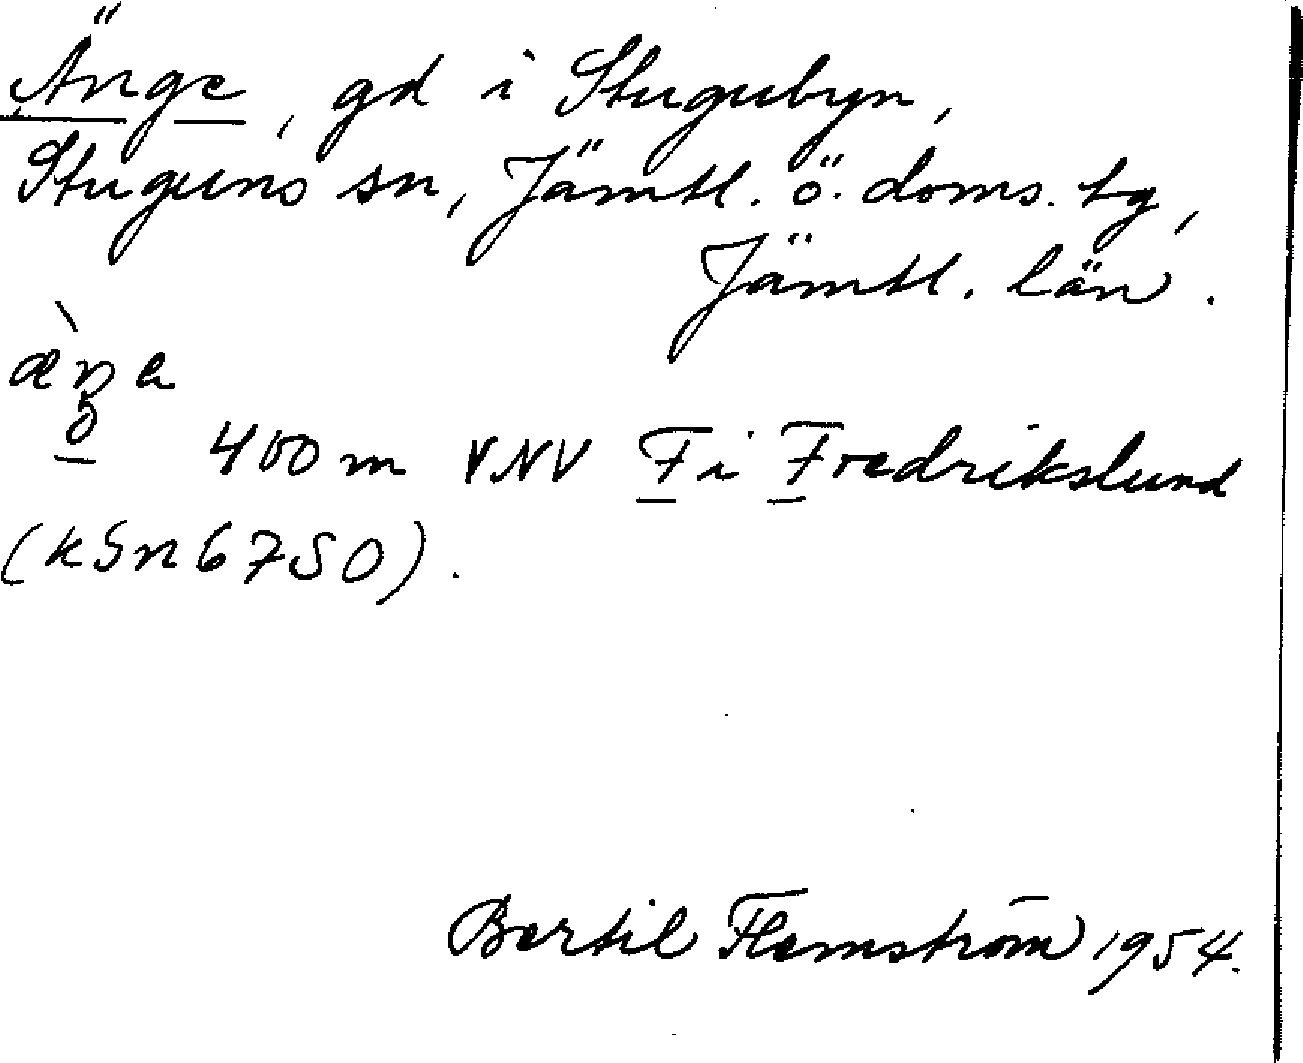 Änge, gd i Stugubyn,
Stuguns sn, Jämtl. ö. doms. tg,
Jämtl. län.
400 m VNV F i Fredrikslund
(kSn6750).
Bertil Flemström 1954.